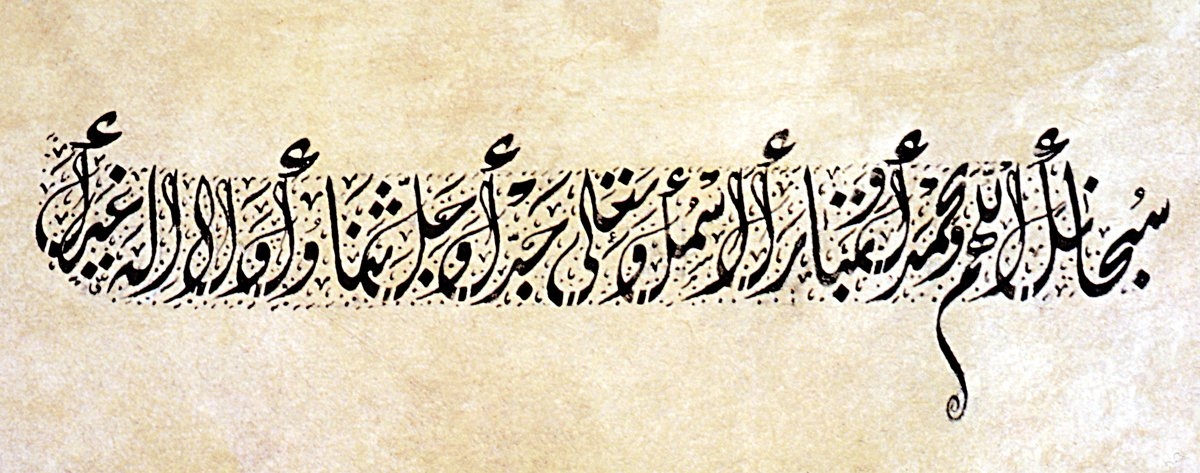 سُبْحَانَكَ اللّٰهُمَّ وَبِحَمْدِكَ وَتَبَارَكَ اسْمُكَ وَتَعَالَى جَدُّكَ وَجَلَّ ثَنَاؤُكَ وَلَا إِلَهَ غَيْرُكَ